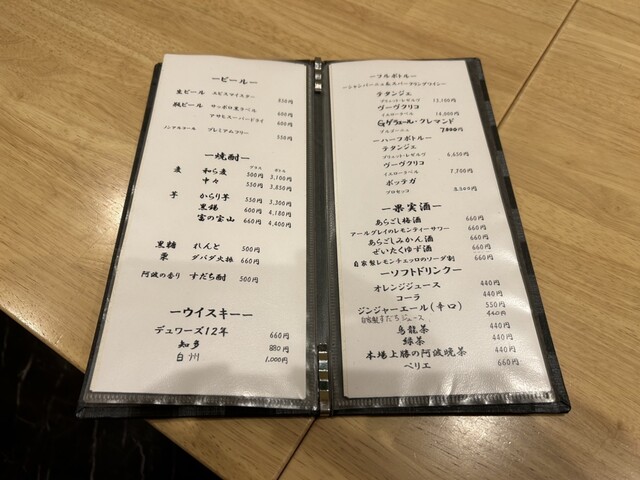 ービールー
生ビール エビスマイスター 550円
瓶ビール サッポロ黒ラベル 600円
アサヒスーパードライ 600円
ノンアルコール プレミアムフリー 550円
ー焼酎ー
グラス ボトル
麦 和ら麦 500円 3,100円
中々 550円 3,850円
芋 からり芋 550円 3,300円
黒錫 600円 4,180円
富の宝山 660円 4,400円
黒糖 れんと 500円
栗 ダバダ火振 660円
阿波の香り すだち酎 500円
ーウイスキーー
デュワーズ12年 660円
知多 880円
白州 1,000円
ーフルボトルー
ーシャンパーニュ&スパークリングワインー
テタンジェ
ブリュット・レゼルヴ 13,100円
ヴーヴクリコ
イエローラベル 14,000円
Gグラェール・クレマンド
ブルゴーニュ 7,800円
ーハーフボトルー
テタンジェ
ブリュット・レゼルヴ 6,650円
ヴーヴクリコ
イエローラベル 7,700円
ボッテガ
プロセッコ 3,500円
ー果実酒ー
あらごし梅酒 660円
アールグレイのレモンティーサワー 660円
あらごしみかん酒 660円
ぜいたくゆず酒 660円
自家製レモンチェッロのソーダ割 660円
ーソフトドリンクー
オレンジジュース 440円
コーラ 440円
ジンジャーエール(辛口) 550円
自家製すだちジュース 440円
烏龍茶 440円
緑茶 440円
本場上勝の阿波晩茶 440円
ペリエ 660円